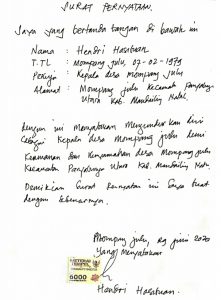 SURAT PERNYATAAN.
Saya yang bertanda tangan di bawah ini
Nama : Hendri Hasibuan
T.TL : Mompang Julu, 07-02-1979
Pekerja : Kepala desa mompang Julu
Alamat : Mompang Julu Kecamatan Panyabungan
Utara Kab. Mandailing Natal
dengan ini menyatakan Mengundurkan diri
sebagai Kepala desa Mompang Julu demi
Keamanan dan Kenyamanan desa Mompang Julu
Kecamatan Panyabungan Utara Kab. Mandailing
Demikian Surat Pernyataan ini Saya buat
dengan Sebenarnya.
Mompang Julu, 29 Juni 2020
Yang Menyatakan
METERAI TEMPEL
6000
Hendri Hasibuan.